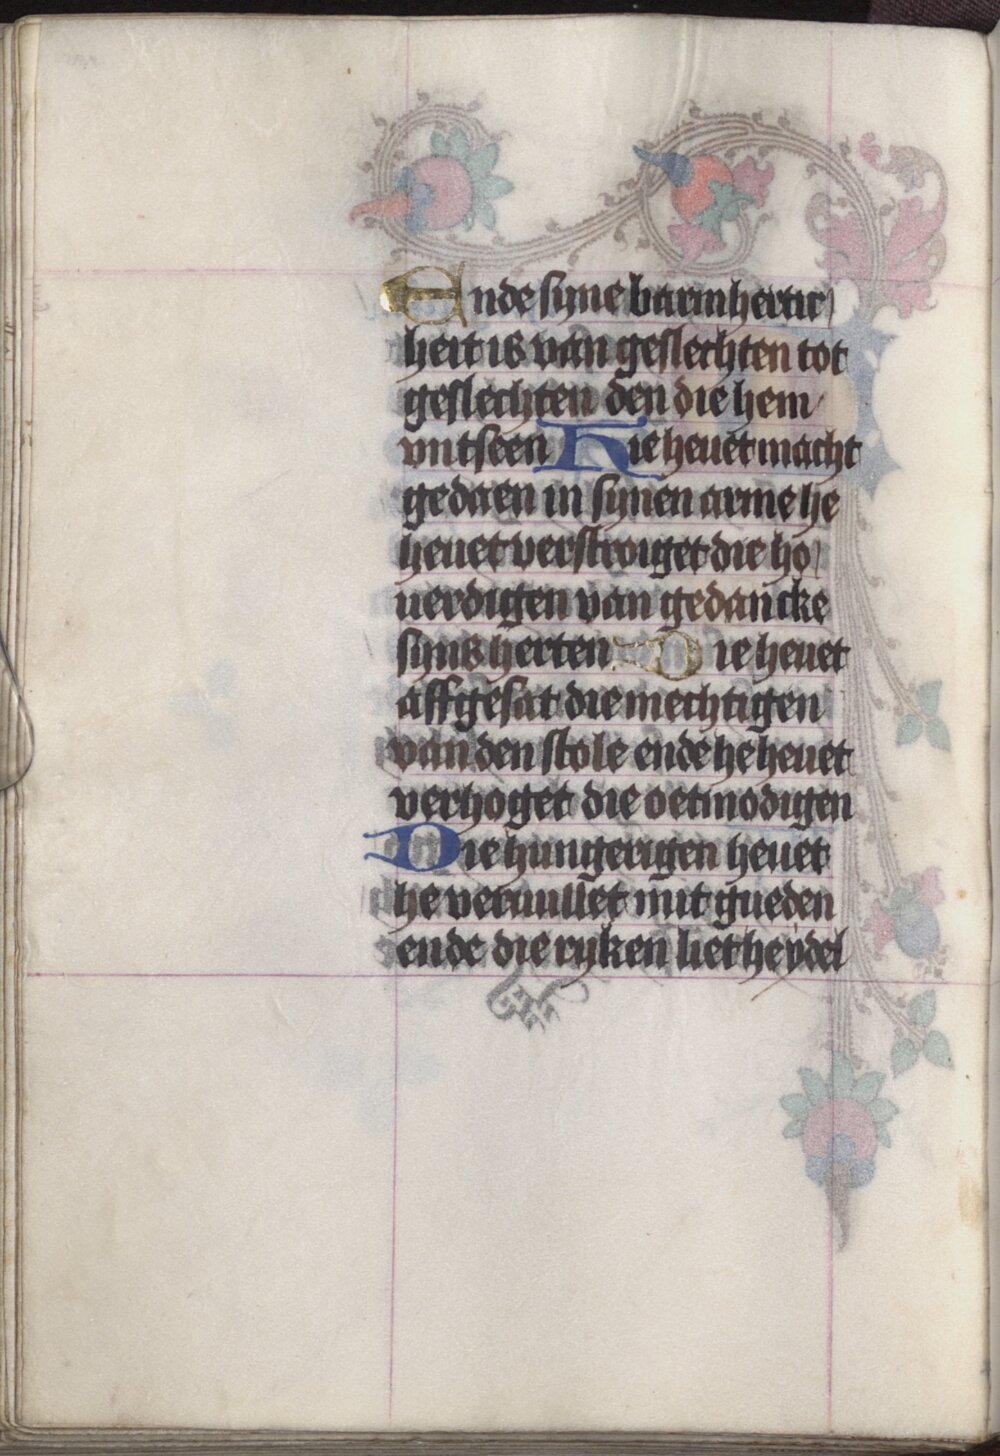 Ende syne barmhertic
heit is van geslechten tot
geslechten den die hem
vntseen Hie heuet macht
gedaen in synen arme he
heuet verstroiget die ho
uerdigen van gedancke
syns herten Die heuet
affgesat die mechtigen
van den stole ende he heuet
verhoget die oetmodigen
Die hungerigen heuet
he veruullet mit gueden
ende die ryken liet he ydel